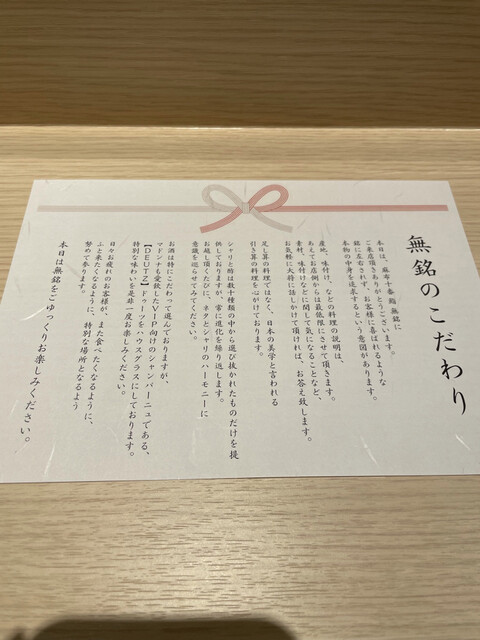 無銘のこだわり
本日は、麻布十番 鮨 無銘に
ご来店頂きありがとうございます。
銘に左右されず、お客様に喜ばれるような
本物の中身を追求するという意図があります。
産地、味付け、などの料理の説明は、
あえてお店側からは最低限にさせて頂きます。
素材、味付けなどに関して気になることなど、
お気軽に大将に話しかけて頂ければ、お答え致します。
足し算の料理ではなく、日本の美学と言われる
引き算の料理を心がけております。
シャリと酢は数十種類の中から選び抜かれたものだけを提
供しておりますが、常に進化を繰り返します。
お越し頂くたびに、ネタとシャリのハーモニーに
意識を巡らせてみてください。
お酒は特にこだわって選んでおりますが、
マドンナも愛飲したVIP向けのシャンパーニュである、
【DEUTZ】ドゥーツをハウスグラスにしております。
特別な味わいを是非一度お楽しみください。
日々お疲れのお客様が、また食べたくなるように、
ふと来たくなるように、特別な場所となるよう
努めて参ります。
本日は無銘をごゆっくりお楽しみください。